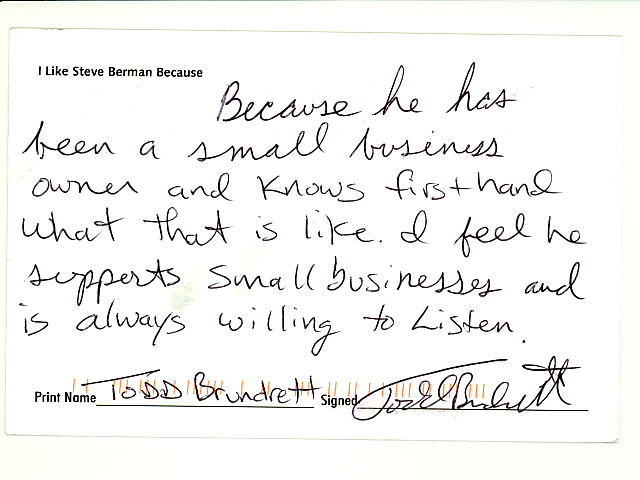 I Like Steve Berman Because
Because he has
been a small business
owner and knows firsthand
what that is like. I feel he
supports small businesses and
is always willing to Listen.
Print Name TODD Brundrett Signed Todd Brundrett